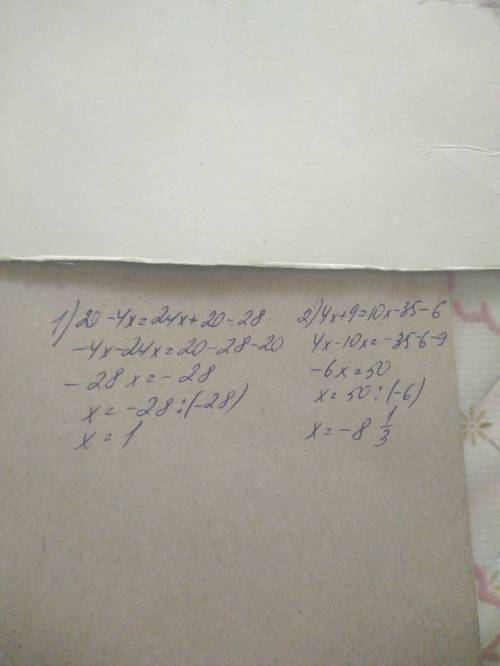 1) 20-4x=24x+20-28
-4x-24x=20-28-20
-28x=-28
x=-28:(-28)
x=1
2) 4x+9=10x-35-6
4x-10x=-35-6-9
-6x=50
x=50:(-6)
x=-8 1/3